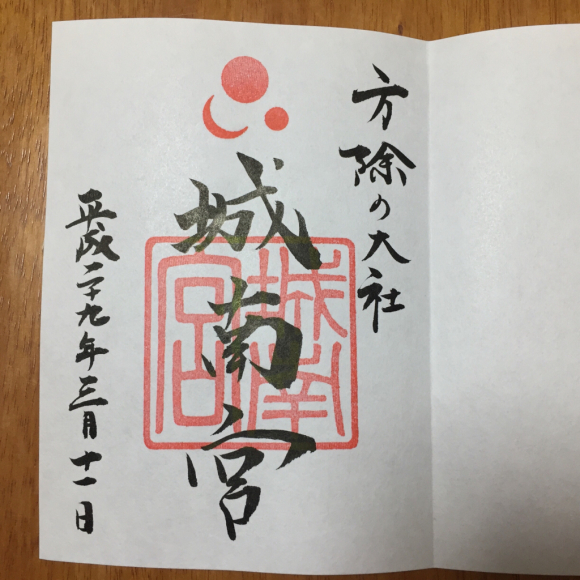 方除の大社
城南宮
城南宮
平成二十九年三月十一日